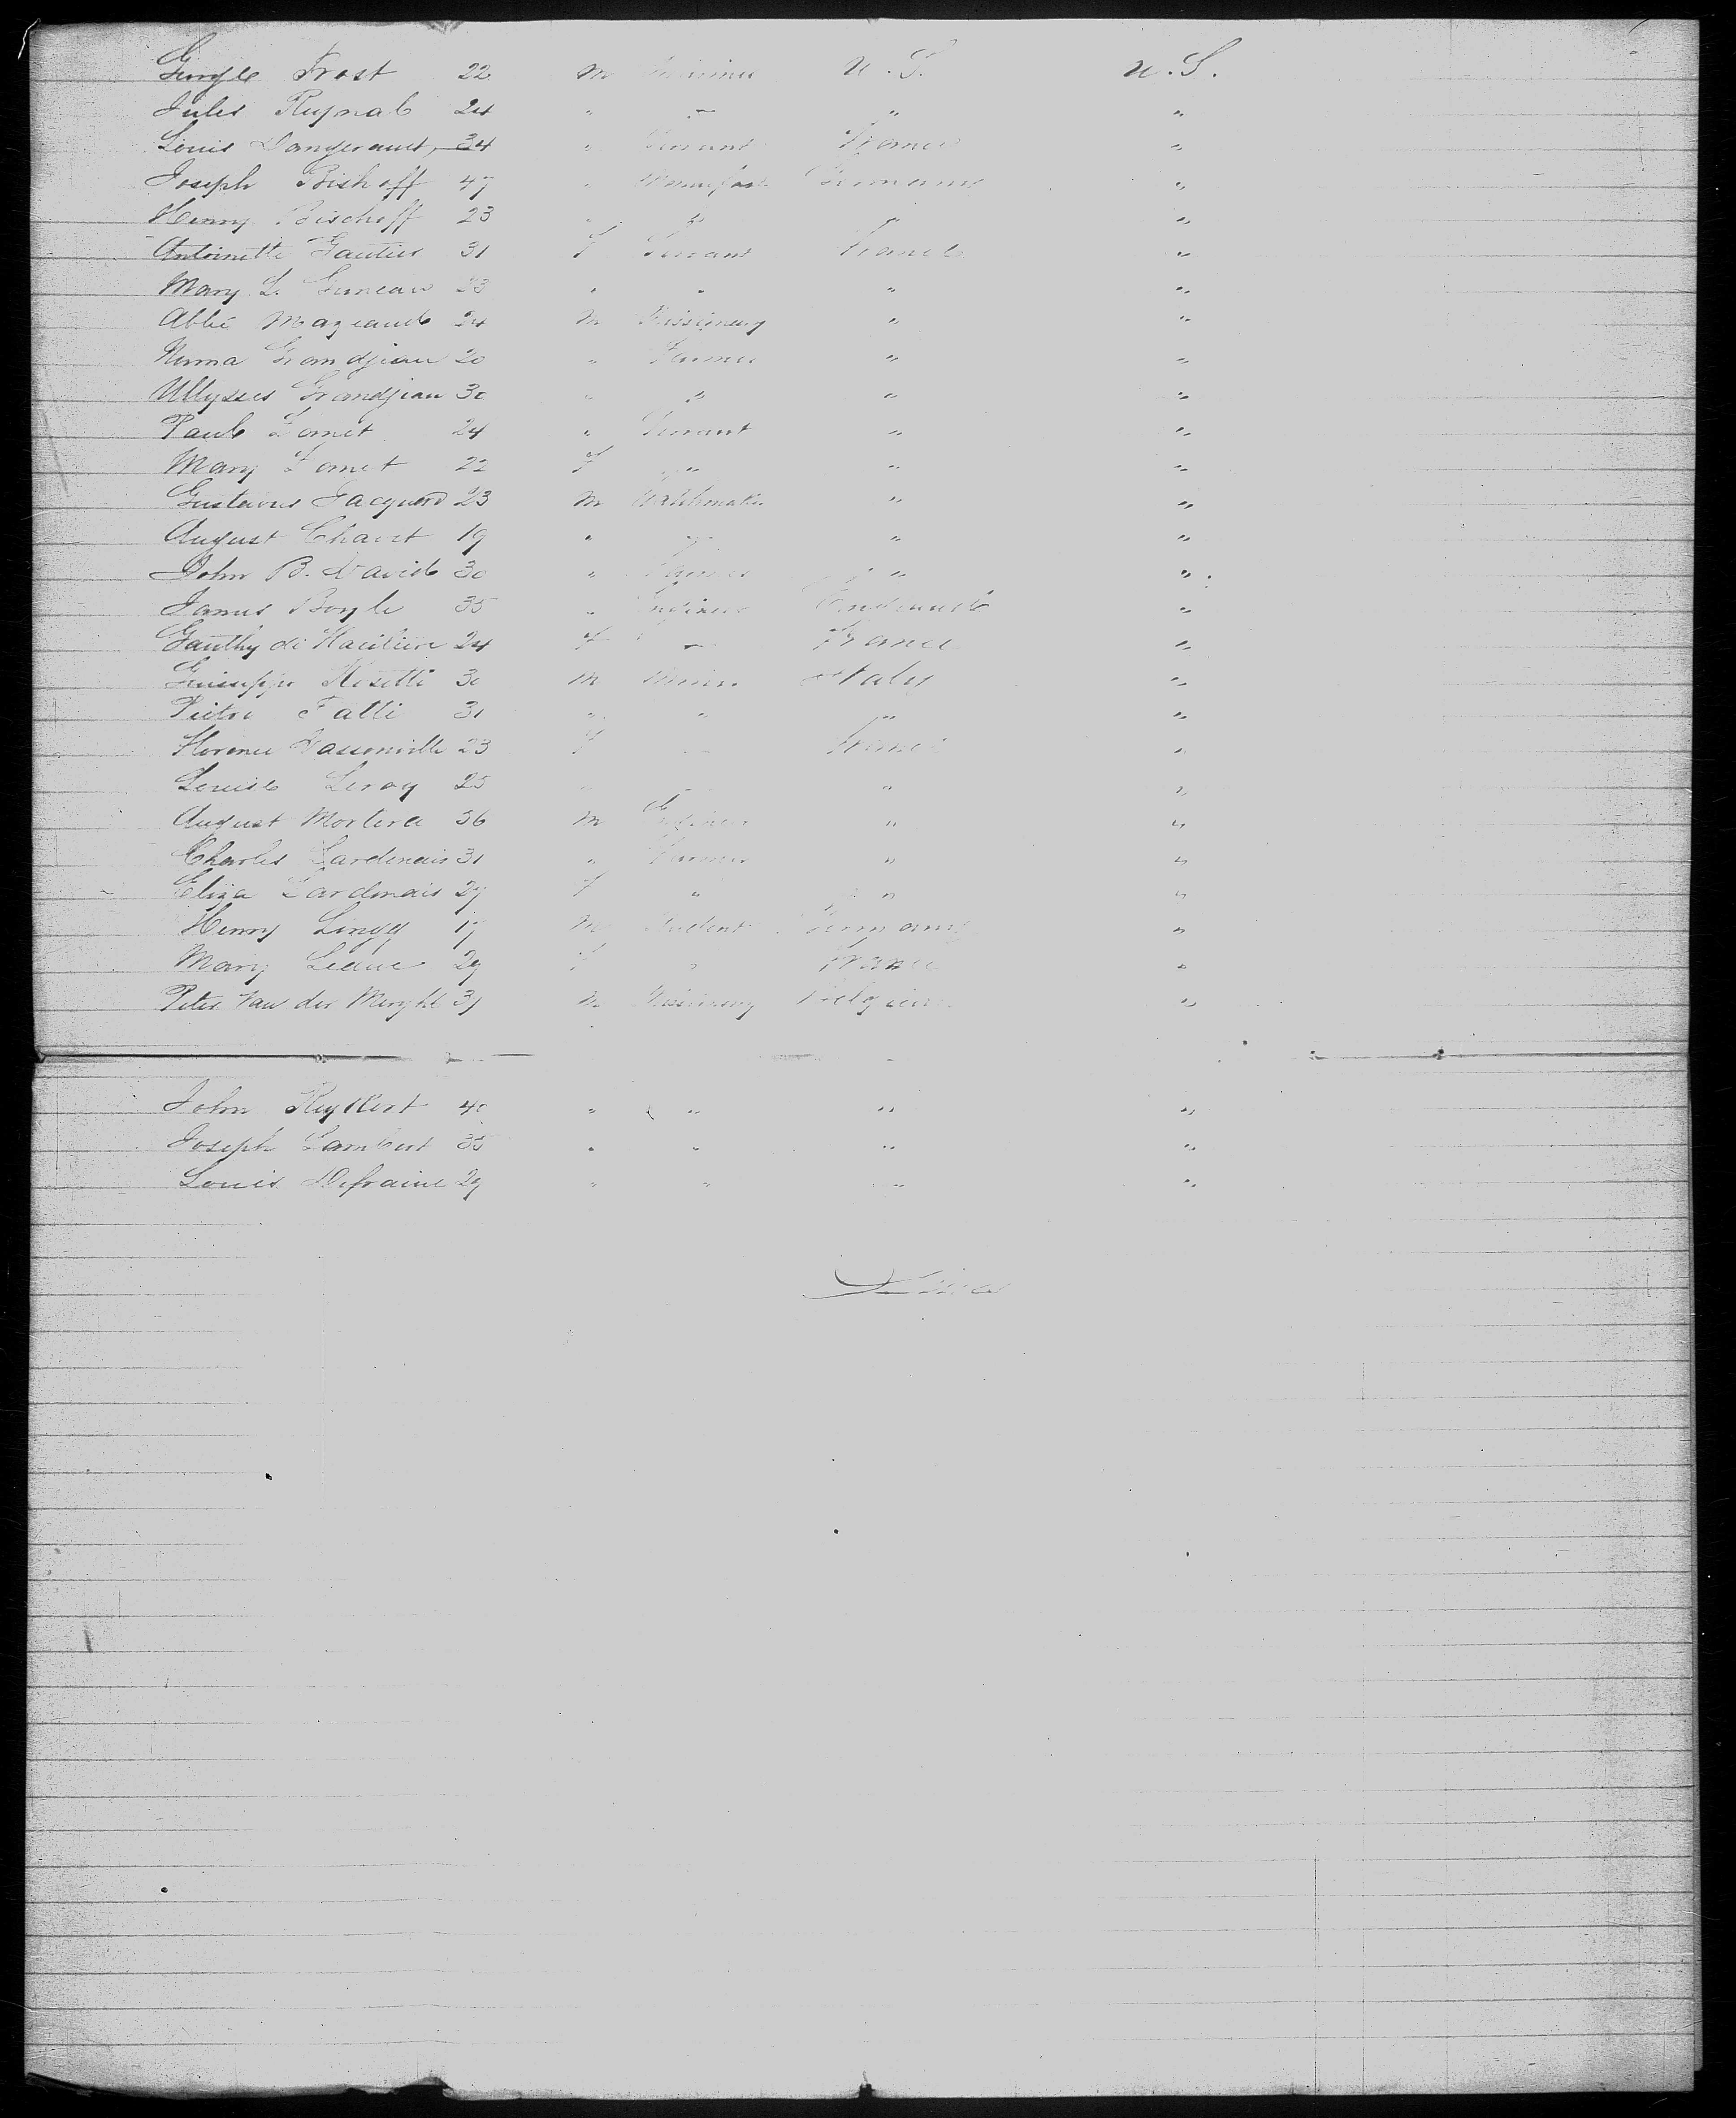 George Frost 22 m U.S. U.S.
Jules Reynal 24 " " " "
Louis Dangerault, 34 " Servant France "
Joseph Bishoff 47 " Manufact. Germany "
Henry Bischoff 23 " " " "
Antoinette Gautier 31 f Servant France "
Mary L. Guneau 23 " " " "
Abbé Mazeaud 24 m Missionary " "
Numa Grandjean 20 " Farmer " "
Ullysses Grandjean 30 " " " "
Paul Lomet 24 " Servant " "
Mary Lomet 22 f " " "
Gustavus Jacquard 23 m Watchmaker " "
August 19 " " " "
John B. David 30 " Farmer " "
James Boyle 35 " England "
Gauthy de 24 f — France "
Guiseppe Rosetti 30 m Miner Italy "
Pietro Fatti 31 " " " "
Florence 23 f — France "
Louise Leroy 25 " — " "
August Mortera 36 m " "
Charles Lardenais 31 " Farmer " "
Eliza Lardenais 29 f " " "
Henry Lingg 17 m Student Germany "
Mary Leduc 29 f " France "
Peter Van der 31 m Missionary Belgium "
John 40 " " " "
Joseph Lambert 35 " " " "
Louis Defraine 29 " " " "